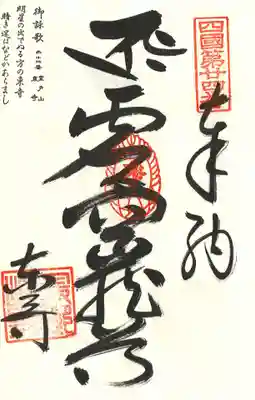 四國第廿四番
奉納
虚空蔵
東寺
御詠歌
明星の出でぬる方の東寺
暗き迷はなどかあらまし